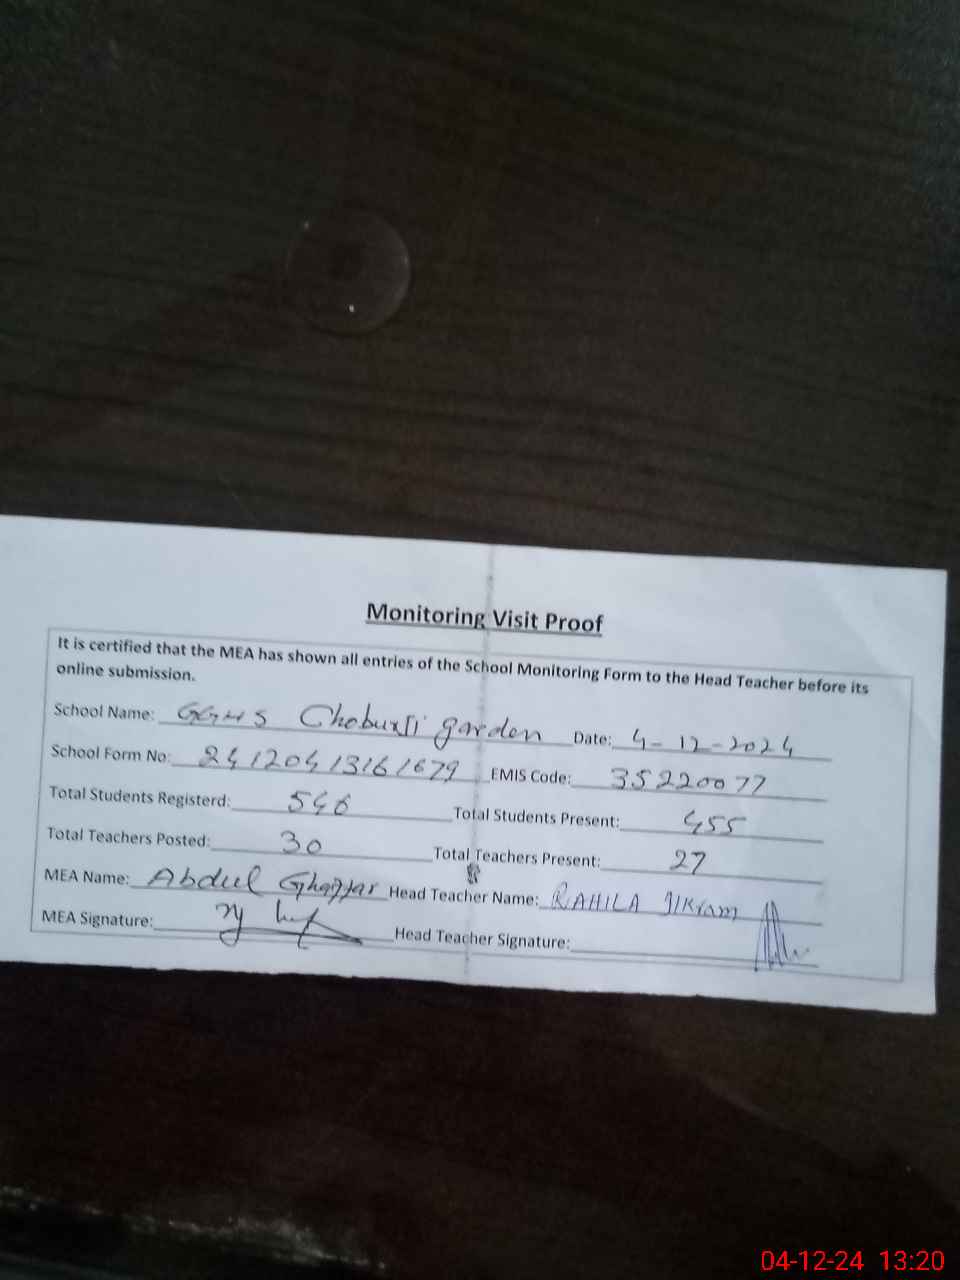 Monitoring Visit Proof
It is certified that the MEA has shown all entries of the School Monitoring Form to the Head Teacher before its
online submission.
School Name: GGHS Choburji garden Date: 4-12-2024
School Form No: 24120413161679 EMIS Code: 35220077
Total Students Registerd: 546 Total Students Present: 455
Total Teachers Posted: 30 Total Teachers Present: 27
MEA Name: Abdul Ghaffar Head Teacher Name: RAHILA IKram
MEA Signature: Head Teacher Signature:
04-12-24 13:20